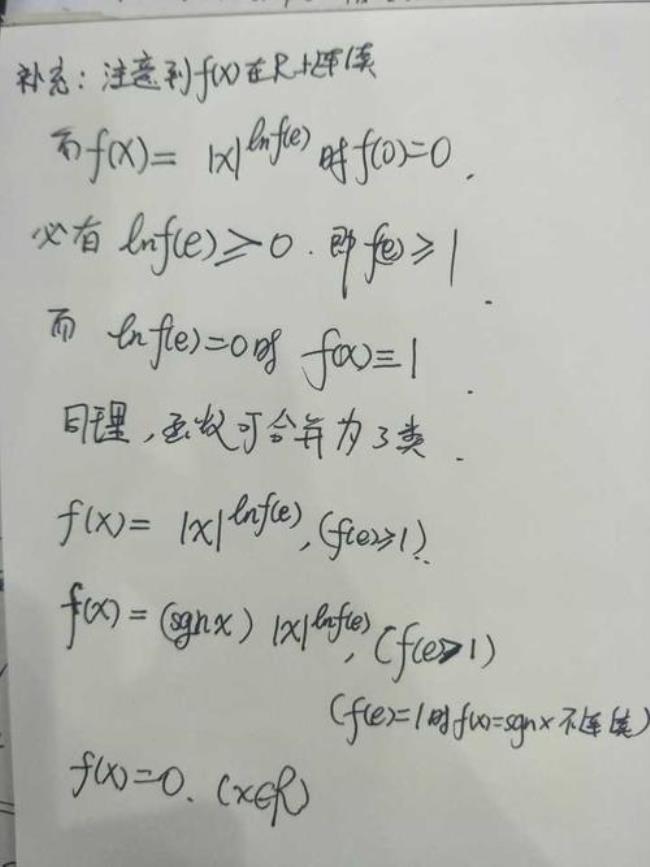 补充：注意到f(x)在R上连续
而f(x)= |x|^{lnf(e)} 时f(0)=0.
必有 lnf(e)≥0. 即f(e)≥1.
而 lnf(e)=0时 f(x)≡1.
同理,函数可合并为3类.
f(x)= |x|^{lnf(e)}, (f(e)≥1).
f(x)=(sgnx) |x|^{lnf(e)}, (f(e)>1)
(f(e)=1时f(x)=sgnx不连续)
f(x)=0. (x∈R)